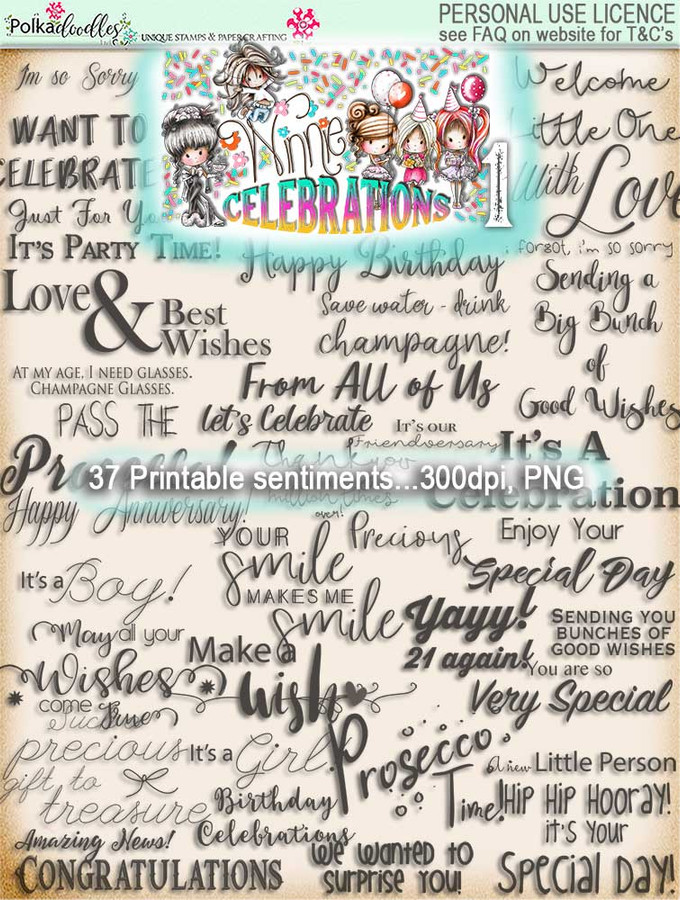 Polkadoodles
UNIQUE STAMPS & PAPERCRAFTING
PERSONAL USE LICENCE
see FAQ on website for T&C's
I'm so Sorry
WANT TO
CELEBRATE
Just For You
IT'S PARTY TIME!
Winnie
CELEBRATIONS
1
Welcome
Little One
With
Love
forgot, i'm so sorry
Happy Birthday
Love & Best
Wishes
Save water - drink
champagne!
Sending a
Big Bunch
of
Good Wishes
AT MY AGE, I NEED GLASSES.
CHAMPAGNE GLASSES.
From ALL of Us
PASS THE
let's Celebrate
IT'S OUR
Friendversary
IT'S A
Celebration
Thank you
37 Printable sentiments...300dpi, PNG
million times
over!
Happy Anniversary!
YOUR
smile
MAKES ME
smile
Precious
Enjoy Your
Special Day
It's a Boy!
Yayy!
21 again!
SENDING YOU
BUNCHES OF
GOOD WISHES
May all your
Wishes
come True
Make a
wish
You are so
Very Special
Such a
precious
gift to
treasure
It's a Girl
Prosecco
Time!
A new Little Person
Birthday
Celebrations
HIP HIP HOORAY!
IT'S YOUR
Special DAY!
Amazing News!
CONGRATULATIONS
We wanted to
surprise you!